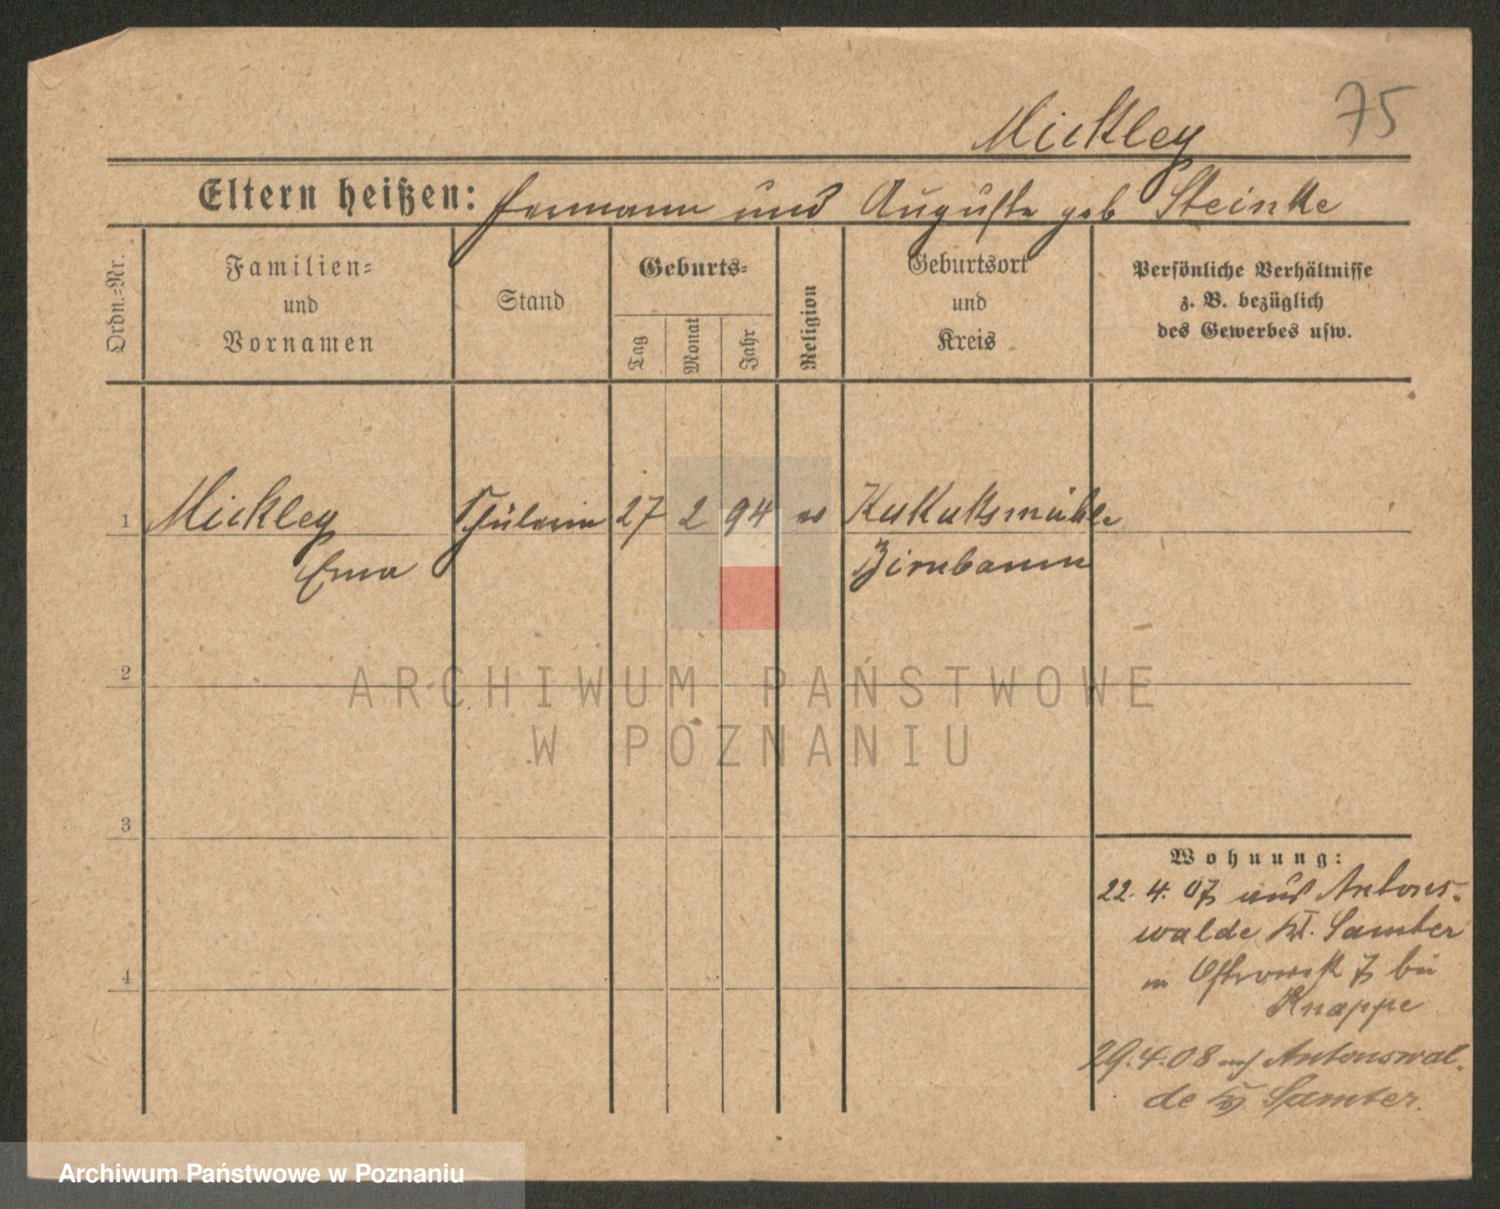 75
Mickley
Eltern heißen: Hermann und Auguste geb Steinke
Ordn.=Nr.
Familien=
und
Vornamen
Stand
Geburts=
Tag
Monat
Jahr
Religion
Geburtsort
und
Kreis
Persönliche Verhältnisse
z. B. bezüglich
des Gewerbes usw.
1 Mickley Schülerin 27 2 94 ev Kukuksmühle
Erna Birnbaum
2
3
4
Wohnung:
22. 4. 07 aus Antons-
walde Kr. Samter
in 7 bei
Knappe
29.4.08 nach Antonswal-
de Kr Samter.
ARCHIWUM PAŃSTWOWE
W POZNANIU
Archiwum Państwowe w Poznaniu